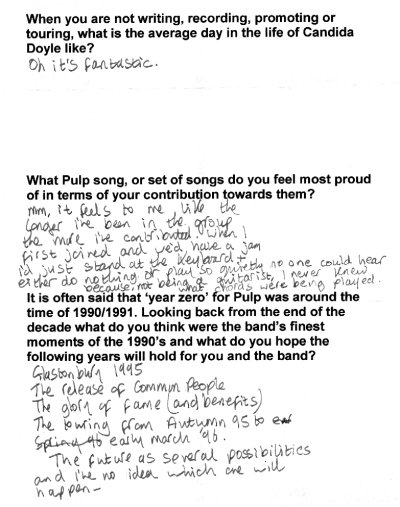 When you are not writing, recording, promoting or
touring, what is the average day in the life of Candida
Doyle like?
Oh it's fantastic.
What Pulp song, or set of songs do you feel most proud
of in terms of your contribution towards them?
Mm, it feels to me like the
longer i've been in the group
the more i've contributed. When I
first joined and we'd have a jam
i'd just stand at the keyboard +
either do nothing or play so quietly no one could hear
because, not being a guitarist, I never knew
what chords were being played.
It is often said that 'year zero' for Pulp was around the
time of 1990/1991. Looking back from the end of the
decade what do you think were the band's finest
moments of the 1990's and what do you hope the
following years will hold for you and the band?
Glastonbury 1995
The release of Common People
The glory of fame (and benefits)
The touring from Autumn 95 to
early march '96.
The future as several possibilities
and i've no idea which one will
happen-